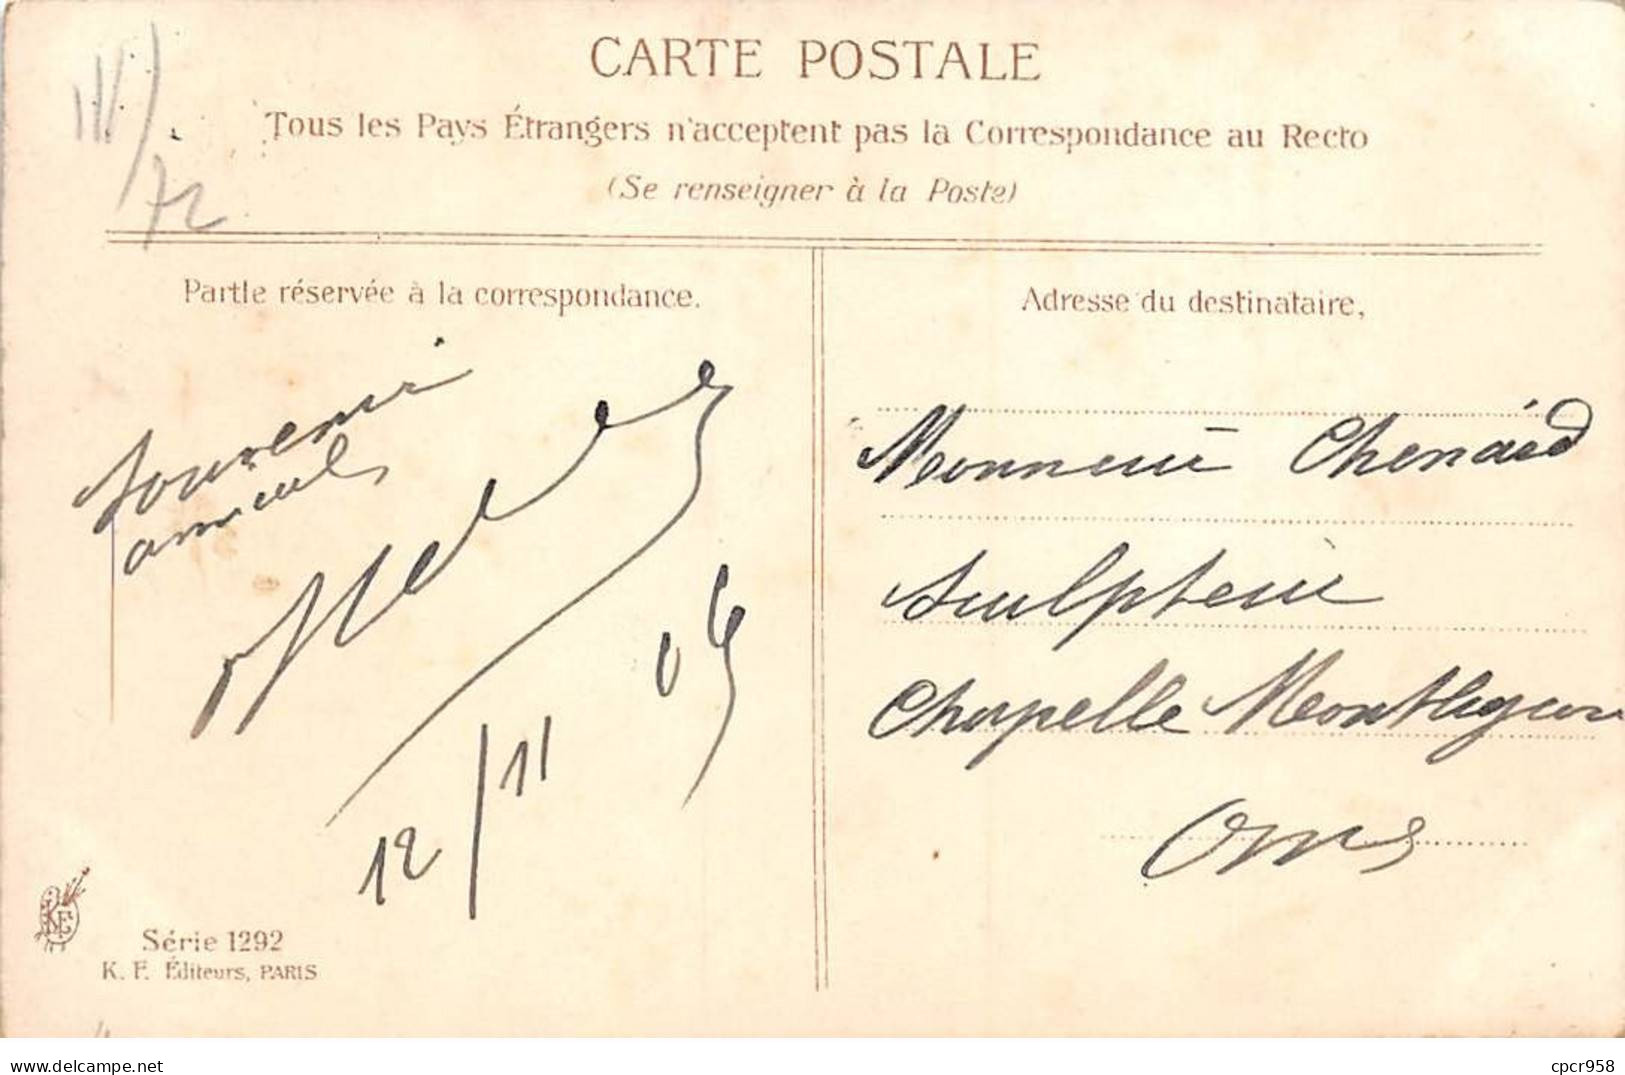 CARTE POSTALE
Tous les Pays Étrangers n'acceptent pas la Correspondance au Recto
(Se renseigner à la Poste)
Partie réservée à la correspondance.
Adresse du destinataire,
Souvenir
amical
12/11 09
Monsieur Chenard
Sculpteur
Chapelle Montligeon
Orne
KF
Série 1292
K. F. Éditeurs, PARIS
Delcampe.net
cpcr958